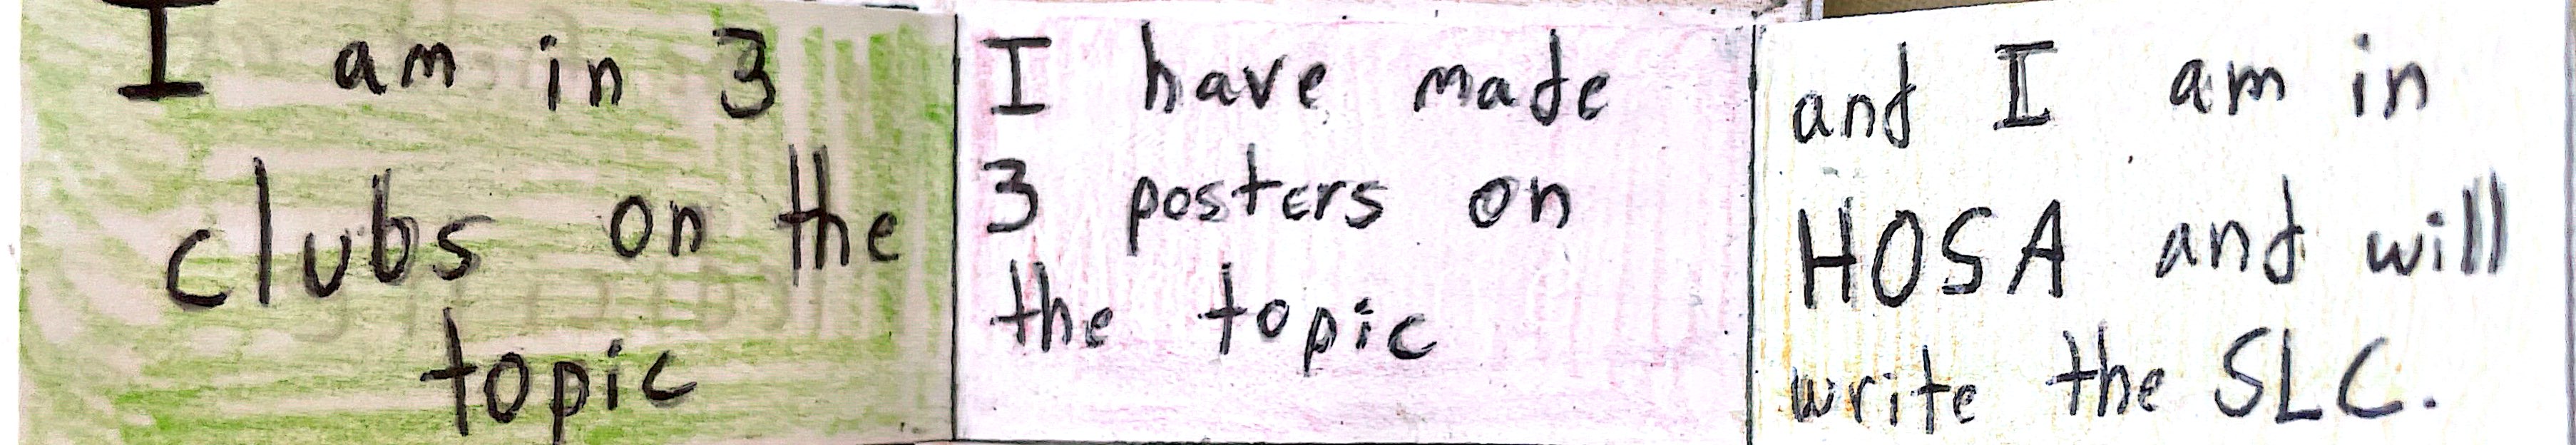 I am in 3
clubs on the
topic
I have made
3 posters on
the topic
and I am in
HOSA and will
write the SLC.